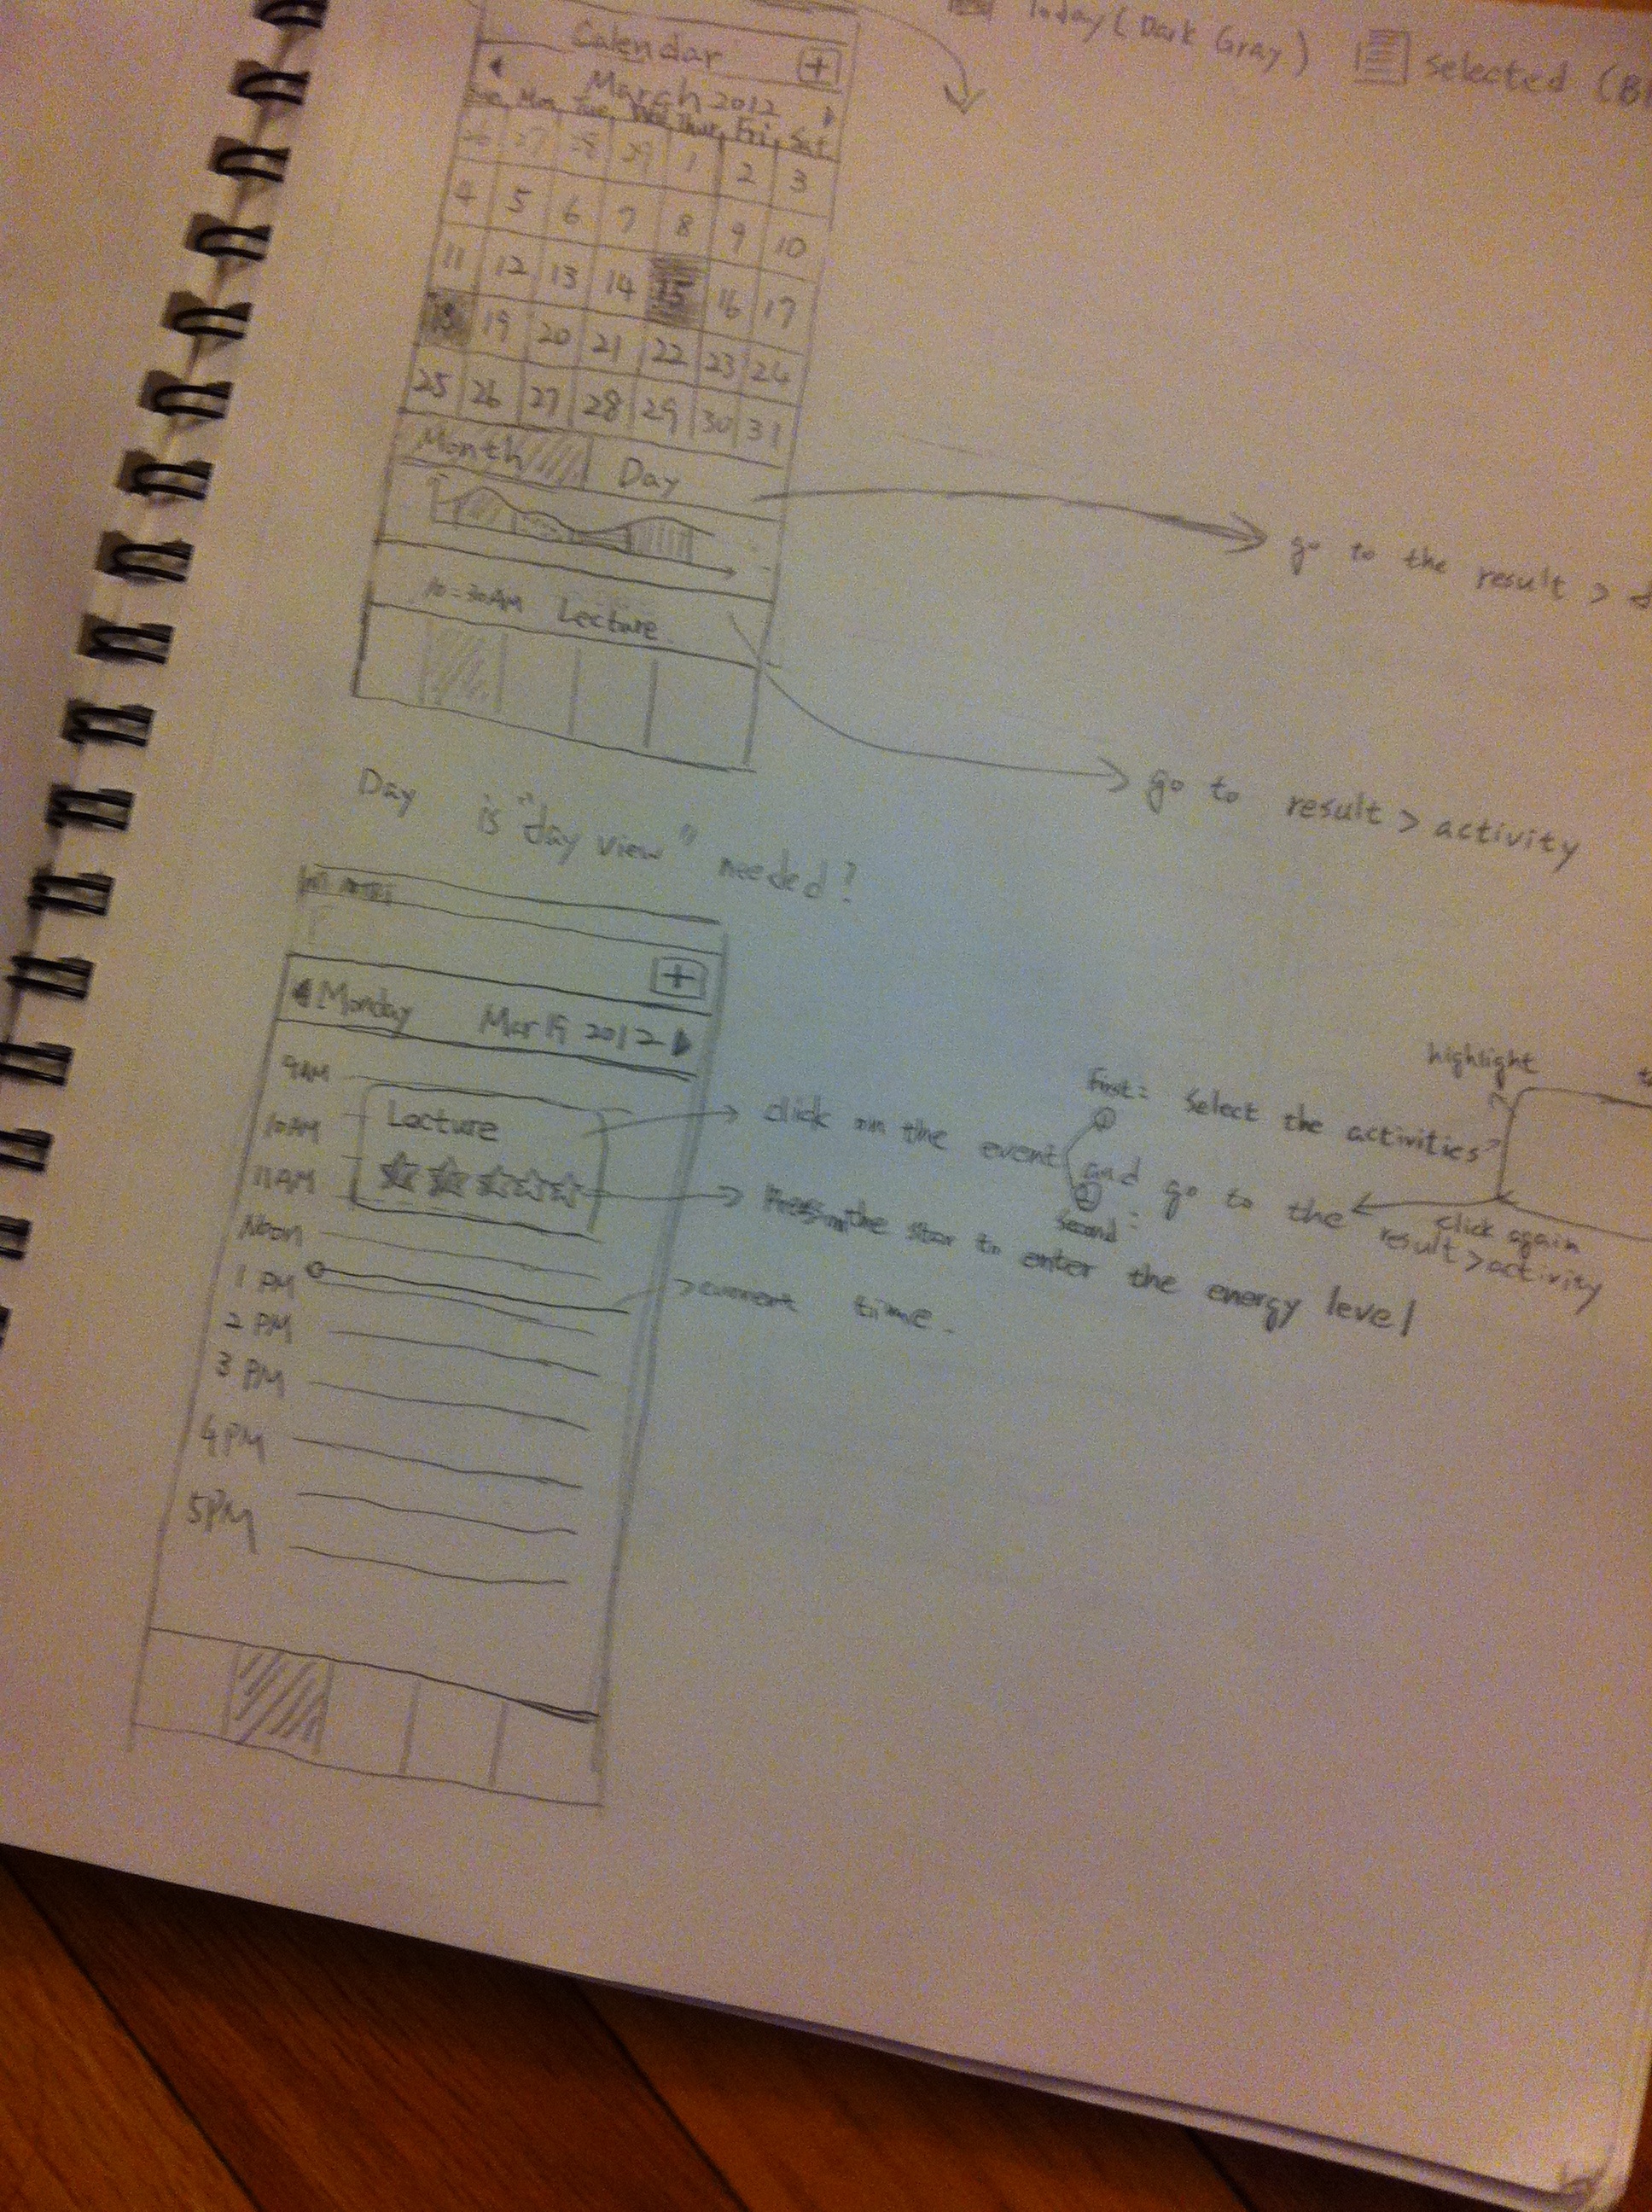 Today (Dark Gray) selected
Calendar +
March 2012
Sun Mon Tue Wed Thur Fri Sat
26 27 28 29 1 2 3
4 5 6 7 8 9 10
11 12 13 14 15 16 17
18 19 20 21 22 23 24
25 26 27 28 29 30 31
Month Day
go to the result >
10:30AM Lecture
go to result > activity
Day is "day view" needed?
+
Monday Mar 19 2012
9AM
10AM
11AM
Noon
1 PM
2 PM
3 PM
4 PM
5PM
Lecture
click on the event and go to the result > activity
First: Select the activities
highlight
Second:
click again
Press on the star to enter the energy level
> current time.